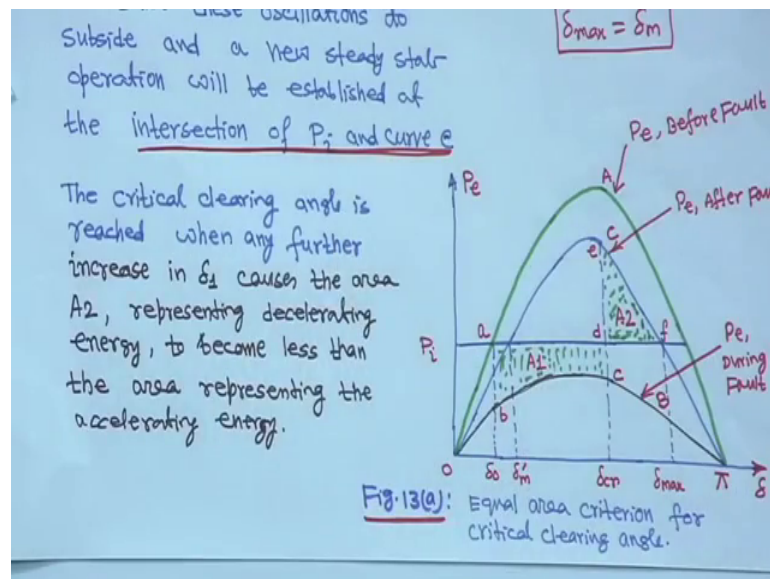 these oscillations do
subside and a new steady state
operation will be established at
the intersection of Pi and curve e
The critical clearing angle is
reached when any further
increase in δ1 causes the area
A2, representing decelerating
energy, to become less than
the area representing the
accelerating energy.
δmax = δm
Pe, Before Fault
Pe
A
Pe, After Fau
e
C
a
d
A2
f
Pi
A1
Pe,
During
Fault
c
b
B
0
δo
δ'm
δcr
δmax
π
δ
Fig.13(a): Equal area criterion for
critical clearing angle.